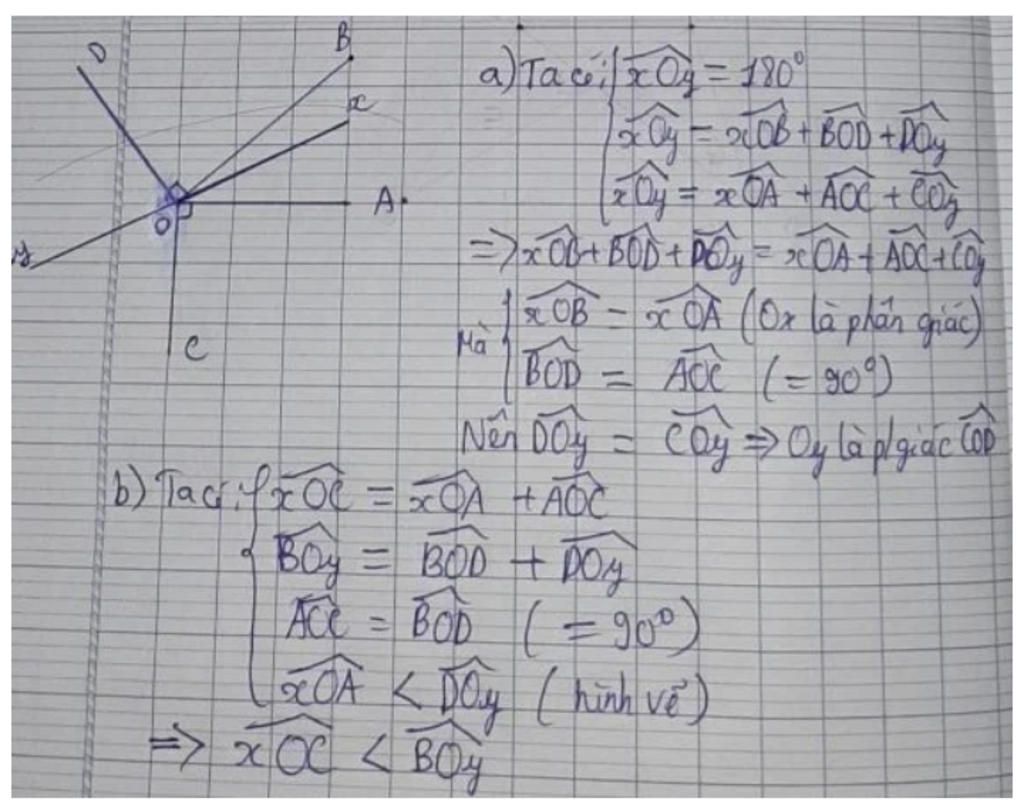 D
B
x
A
O
y
C
a) Ta có: { xOy = 180°
xOy = xOB + BOD + DOy
xOy = xOA + AOC + COy
=> xOB + BOD + DOy = xOA + AOC + COy
Mà { xOB = xOA (Ox là phân giác)
BOD = AOC (= 90°)
Nên DOy = COy => Oy là p/giác COD
b) Ta có: { xOC = xOA + AOC
BOy = BOD + DOy
AOC = BOD (= 90°)
xOA < DOy (hình vẽ)
=> xOC < BOy